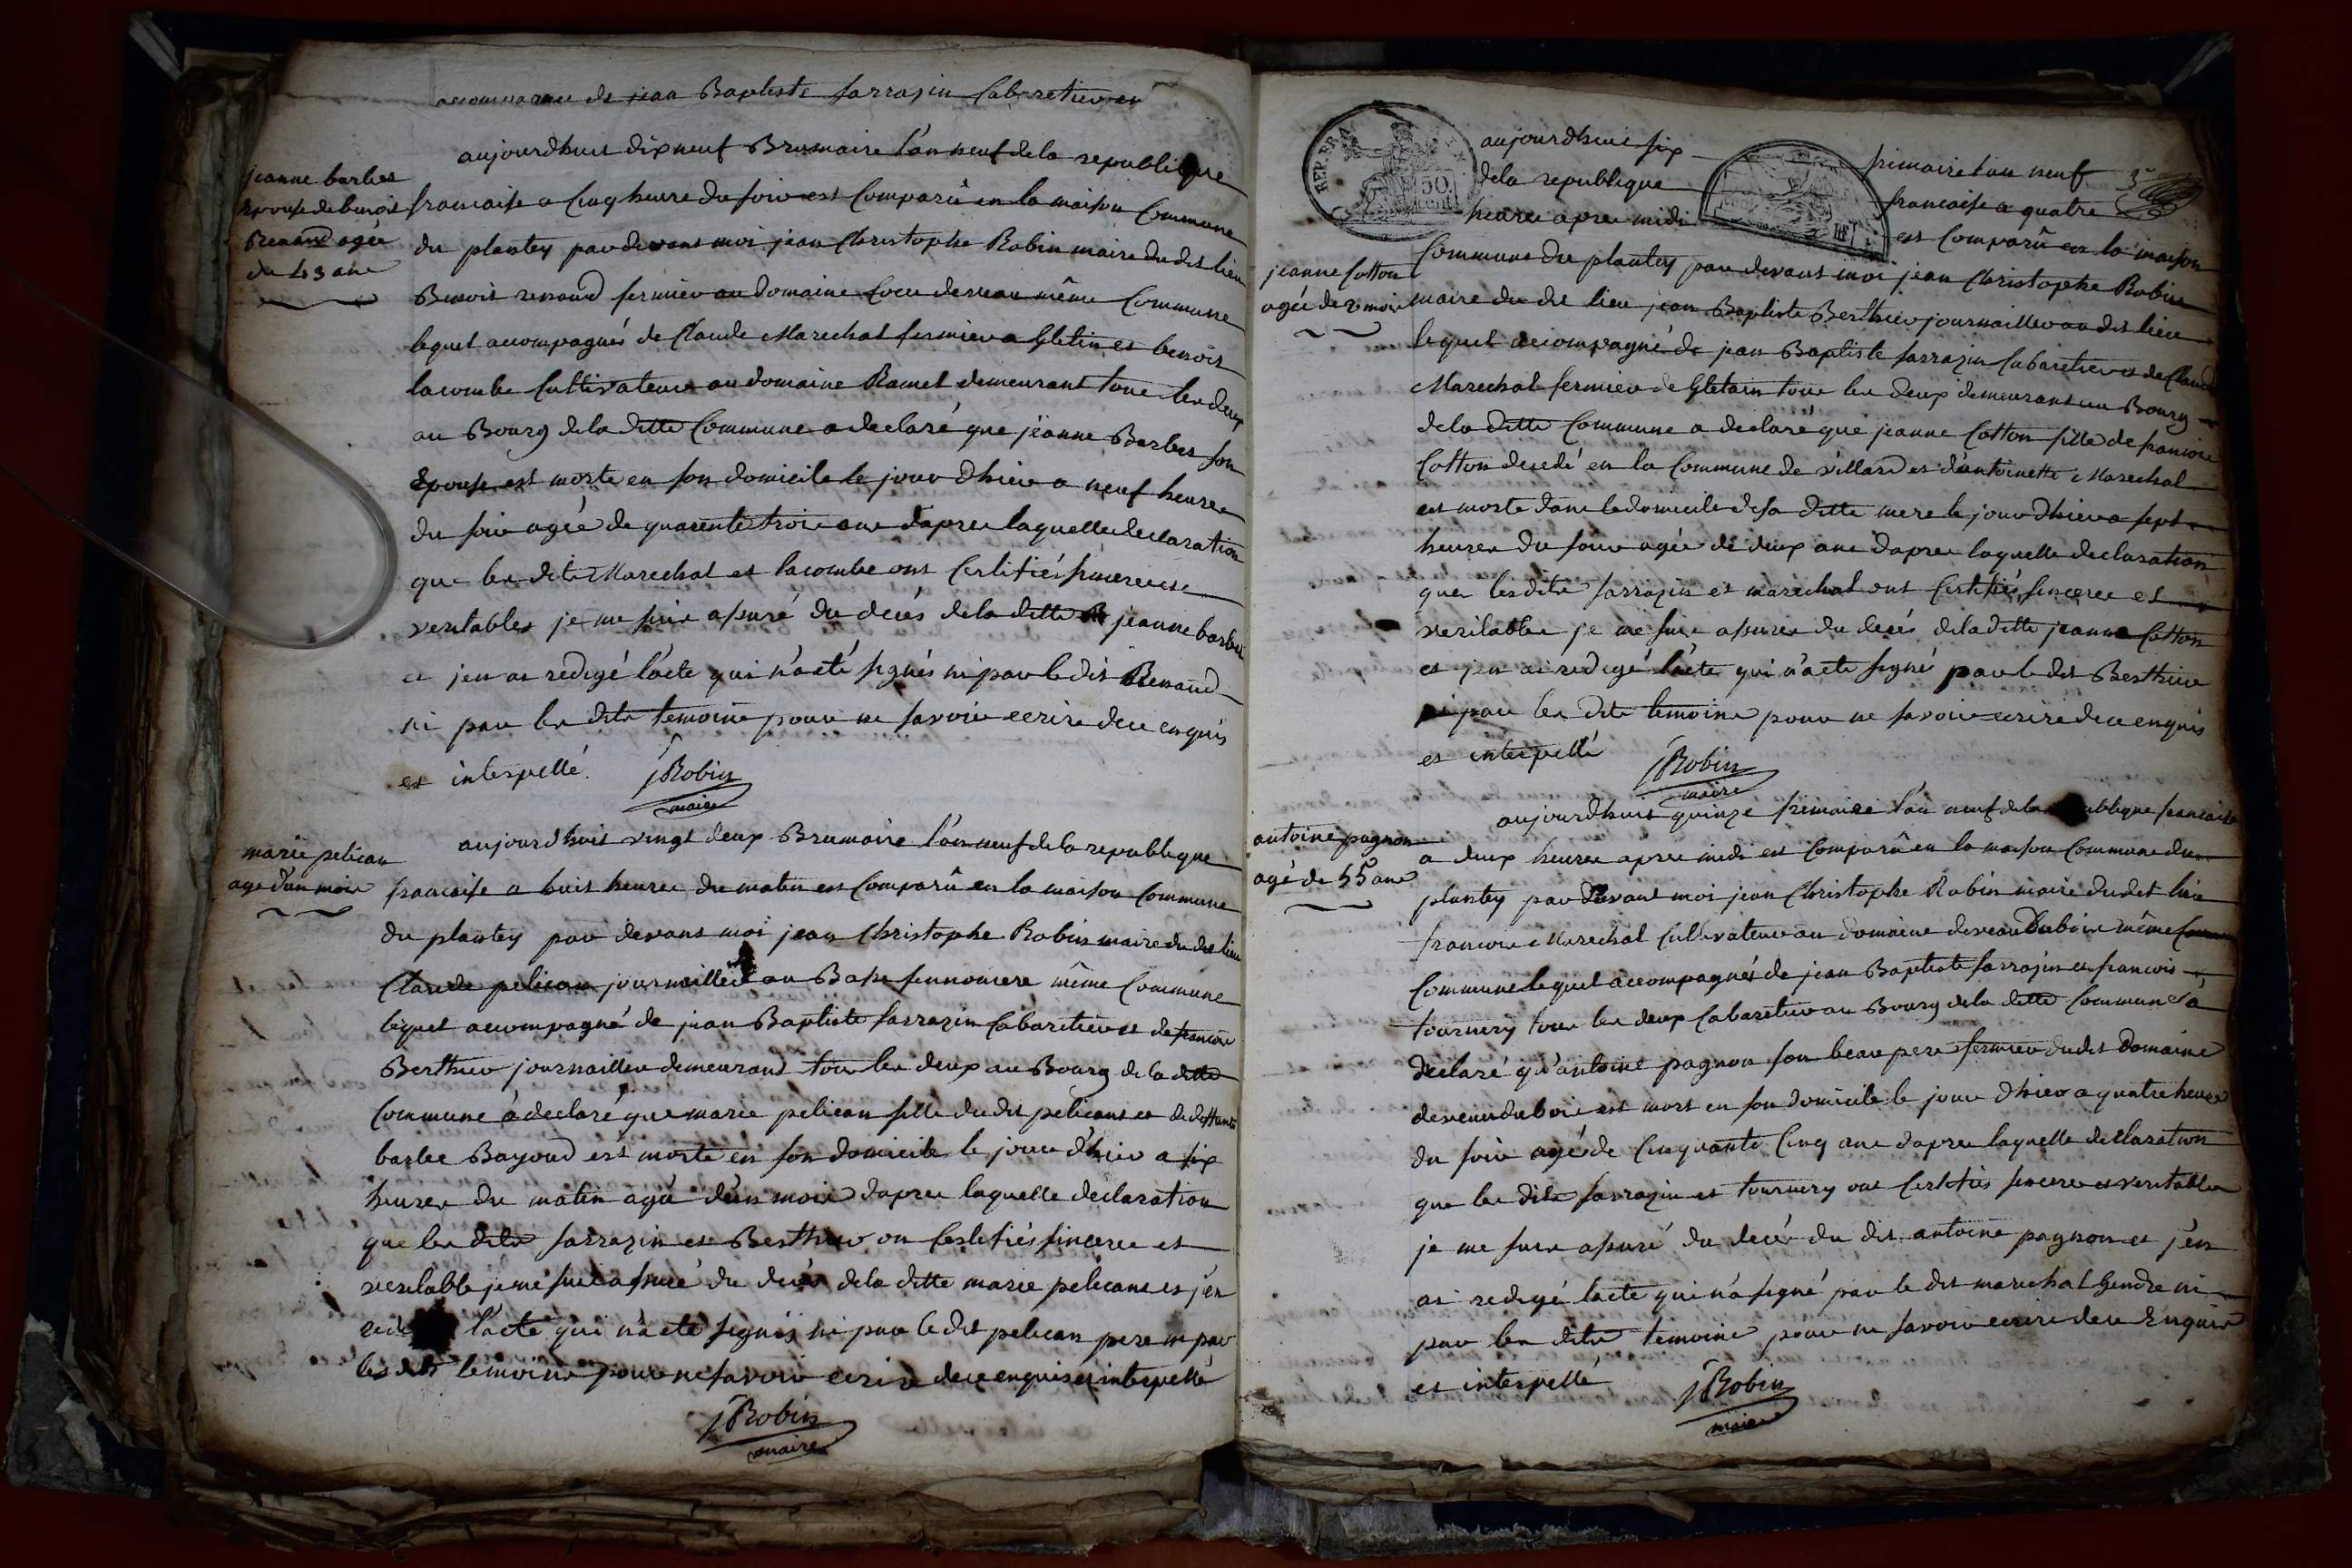 accompagné de jean Baptiste sarrazin Cabaretier en
aujourdhuit dix neuf Brumaire l'an neuf de la republique
jeanne barbet
Epouse de benoit
Renaud agée
de 43 ans
francaise a Cinq heure du soir est Comparû en la maison Commune
du plantey par devant moi jean Christophe Robin maire du dit lieu
Benoit renaud fermier au domaine même Commune
lequel accompagnés de Claude Marechal fermier a Gletin et benoit
lacombe Cultivateur au domaine Ramel demeurant tous les deux
au Bourg de la ditte Commune a declaré que jeanne Barbet son
Epouse est morte en son domicile le jour d'hier a neuf heures
du soir agée de quarente trois ans d'apres laquelle declaration
que les dits Marechal et lacombe ont Certifiés sincere et
veritables je me suis assuré du decés de la ditte jeanne barbet
et jen ai redigé l'acte qui n'a eté signés ni par le dit Renaud
ni par les dits temoins pour ne savoir ecrire de ce enquis
et interpellé. jRobin
maire
marie pelican
age d'un mois
aujourdhuit vingt deux Brumaire l'an neuf de la republique
francaise a huit heures du matin est Comparû en la maison Commune
du plantey par devant moi jean Christophe Robin maire du dit lieu
Claude pelican journaillier au même Commune
lequel accompagné de jean Baptiste sarrazin Cabaretier et de francois
Berthier journaillier demeurant tous les deux au Bourg de la ditte
Commune à declaré que marie pelican fille du dit pelicant et de deffunte
barbe Bayoud est morte en son domicile le jour d'hier a six
heures du matin agée d'un mois d'apres laquelle declaration
que les dits sarrazin et Berthier on Certifiés sinceres et
veritable je me suis assuré du decés de la ditte marie pelicant et j'en
l'acte qui n'a eté signés ni par le dit pelican pere ni par
les dits temoins pour ne savoir ecrire de ce enquis et interpellé
jRobin
maire
REP. FRA
50.
cent
3e
aujourdhuit six frimaire l'an neuf
de la republique francaise a quatre
heures apres midi est Comparû en la maison
jeanne Cotton
agée de 2 mois
Commune du plantey par devant moi jean Christophe Robin
maire du dit lieu jean Baptiste Berthier journaillier au dit lieu
lequel accompagné de jean Baptiste sarrazin Cabaretier et de Claude
Marechal fermier de Gletain tous les deux demeurant au Bourg
de la ditte Commune a declaré que jeanne Cotton fille de francois
Cotton decedé en la Commune de villard et d'antoinette Marechal
est morte dans le domicile de sa ditte mere le jour d'hier a sept
heures du soir agée de deux ans d'apres laquelle declaration
que les dits sarrazin et marechal ont Certifiés sinceres et
veritables je me suis assurer du decés de la ditte jeanne Cotton
et jen ai redigé l'acte qui n'a eté signé par le dit Berthier
ni par les dits temoins pour ne savoir ecrire de ce enquis
et interpellé jRobin
maire
antoine pagnon
agé de 55 ans
aujourdhuit quinze frimaire l'an neuf de la republique francaise
a deux heures apres midi est Comparû en la maison Commune du
plantey par devant moi jean Christophe Robin maire du dit lieu
francois Marechal Cultivateur au domaine même
Commune lequel accompagnés de jean Baptiste sarrazin et francois
tournery tous les deux Cabaretier au Bourg de la ditte Commune à
declaré qu'antoine pagnon son beau pere fermier du dit domaine
est mort en son domicile le jour d'hier a quatre heures
du soir agé de Cinquante Cinq ans d'apres laquelle declaration
que les dits sarrazin et tournery ont Certifiés sincere et veritables
je me suis assuré du decés du dit antoine pagnon et j'en
ai redigé l'acte qui n'a signé par le dit marechal Gendre ni
par les dits temoins pour ne savoir ecrire de ce Enquis
et interpellé jRobin
maire